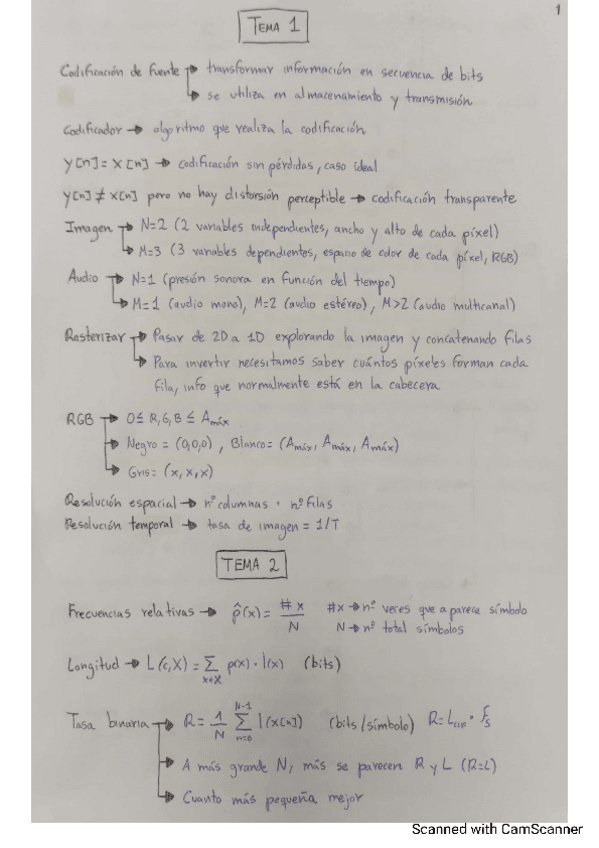 1
TEMA 1
Codificación de fuente → transformar información en secuencia de bits
→ se utiliza en almacenamiento y transmisión
Codificador → algoritmo que realiza la codificación
Y[n] = X[n] → codificación sin pérdidas, caso ideal
Y[n] ≠ X[n] pero no hay distorsión perceptible → codificación transparente
Imagen → N=2 (2 variables independientes, ancho y alto de cada píxel)
→ M=3 (3 variables dependientes, espacio de color de cada píxel, RGB)
Audio → N=1 (presión sonora en función del tiempo)
→ M=1 (audio mono), M=2 (audio estéreo), M>2 (audio multicanal)
Rasterizar → Pasar de 2D a 1D explorando la imagen y concatenando filas
→ Para invertir necesitamos saber cuántos píxeles forman cada
fila, info que normalmente está en la cabecera
RGB → 0 ≤ R,G,B ≤ Amáx
→ Negro = (0,0,0), Blanco = (Amáx, Amáx, Amáx)
→ Gris = (x,x,x)
Resolución espacial → nº columnas · nº filas
Resolución temporal → tasa de imagen = 1/T
TEMA 2
Frecuencias relativas → p̂(x) = #x / N #x → nº veces que aparece símbolo
N → nº total símbolos
Longitud → L(c,X) = Σ x∈X p(x) · l(x) (bits)
Tasa binaria → R = 1/N Σ n=0 N-1 l(x[n]) (bits/símbolo) R = · fs
→ A más grande N, más se parecen R y L (R=L)
→ Cuanto más pequeña mejor
Scanned with CamScanner